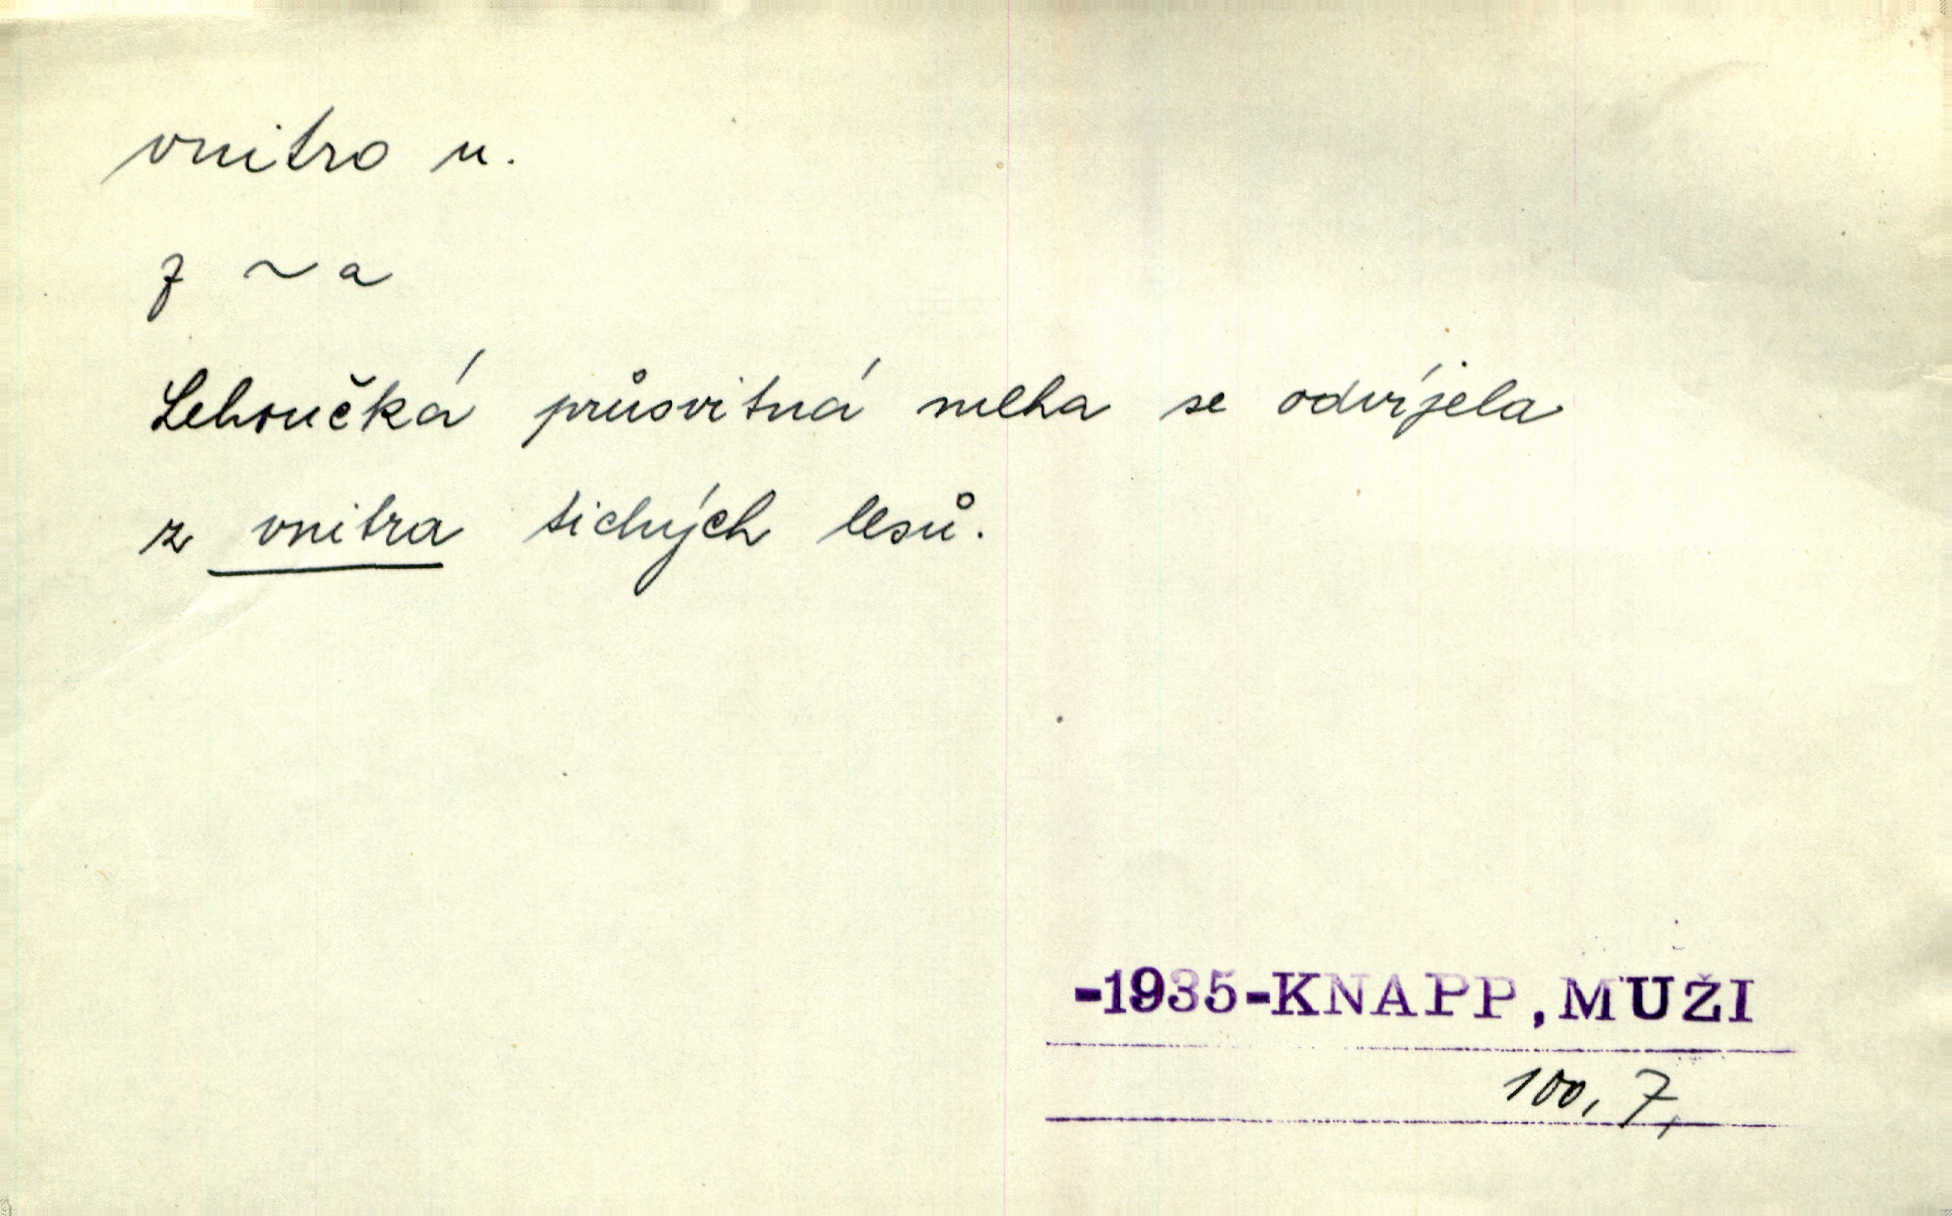 vnitro n.
z ~a
Lehoučká průsvitná mlha se odvíjela
z vnitra tichých lesů.
-1935-KNAPP, MUŽI
100, 7,